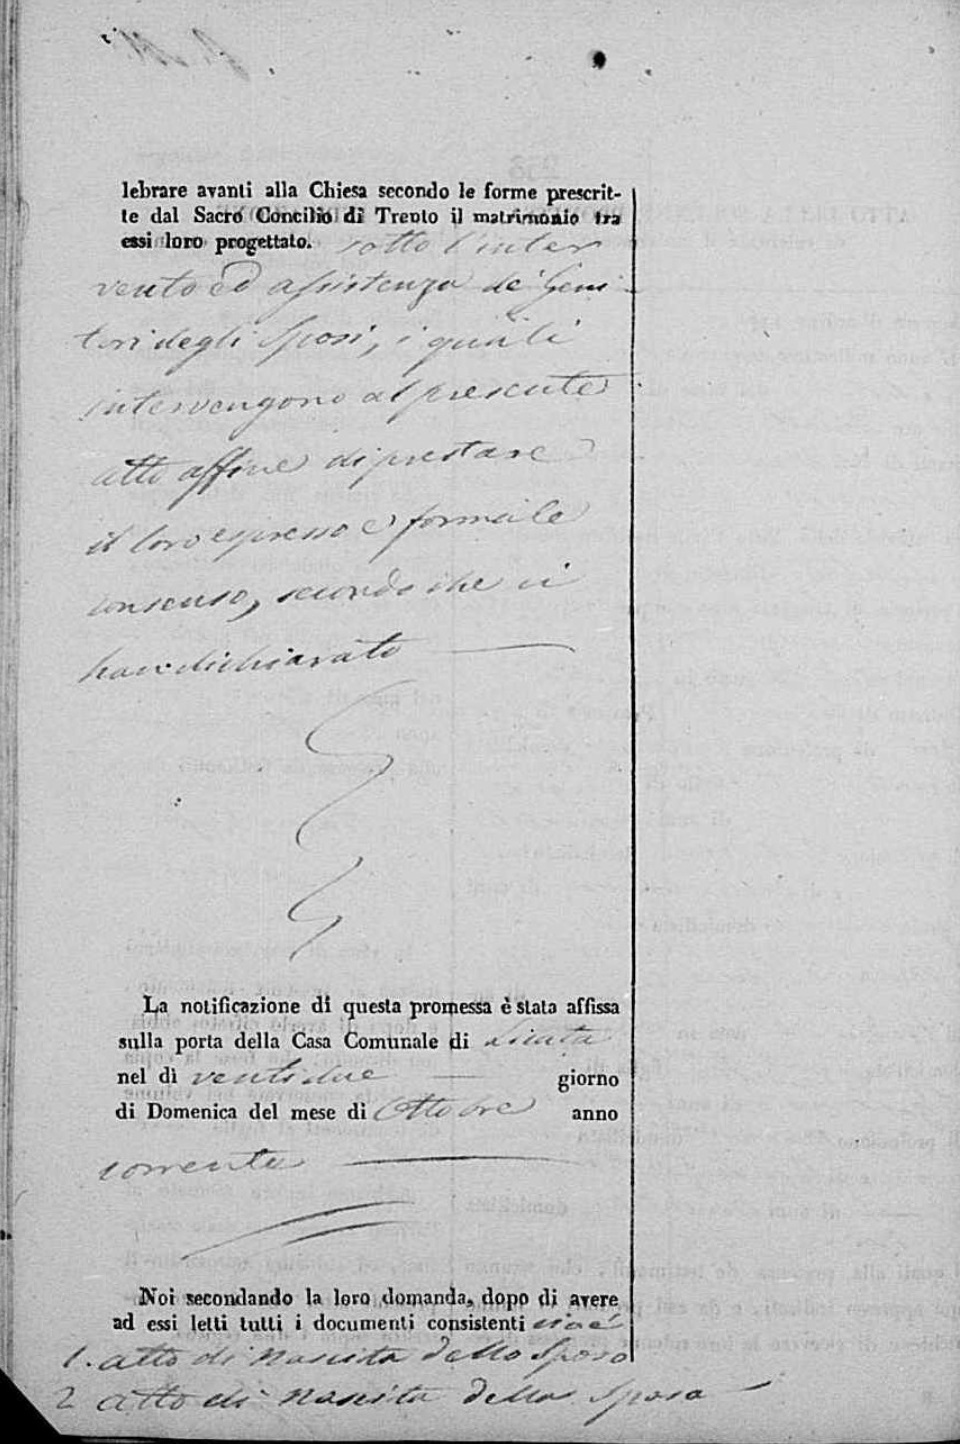 lebrare avanti alla Chiesa secondo le forme prescrit-
te dal Sacro Concilio di Trento il matrimonio tra
essi loro progettato. sotto l'inter
vento ed assistenza de' Geni
tori degli Sposi, i quali
intervengono al presente
atto affine di prestare
il loro espresso e formale
consenso, secondo che ci
han dichiarato
La notificazione di questa promessa è stata affissa
sulla porta della Casa Comunale di Licata
nel dì ventidue giorno
di Domenica del mese di Ottobre anno
corrente
Noi secondando la loro domanda, dopo di avere
ad essi letti tutti i documenti consistenti cioè
1. atto di nascita dello Sposo
2 atto di nascita della Sposa